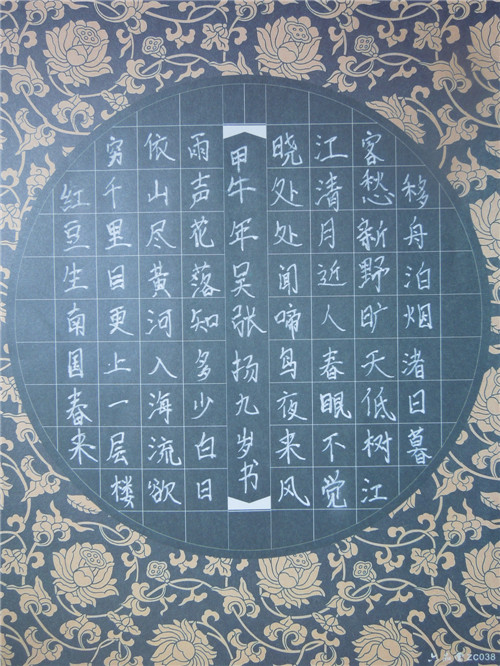 移舟泊烟渚日暮
客愁新野旷天低树江
江清月近人春眠不觉
晓处处闻啼鸟夜来风
甲午年吴张扬九岁书
雨声花落知多少白日
依山尽黄河入海流欲
穷千里目更上一层楼
红豆生南国春来
ZC038